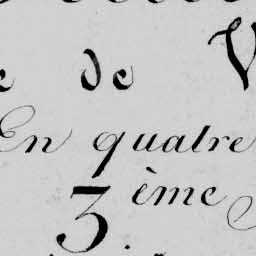 de V
En quatre
3ème